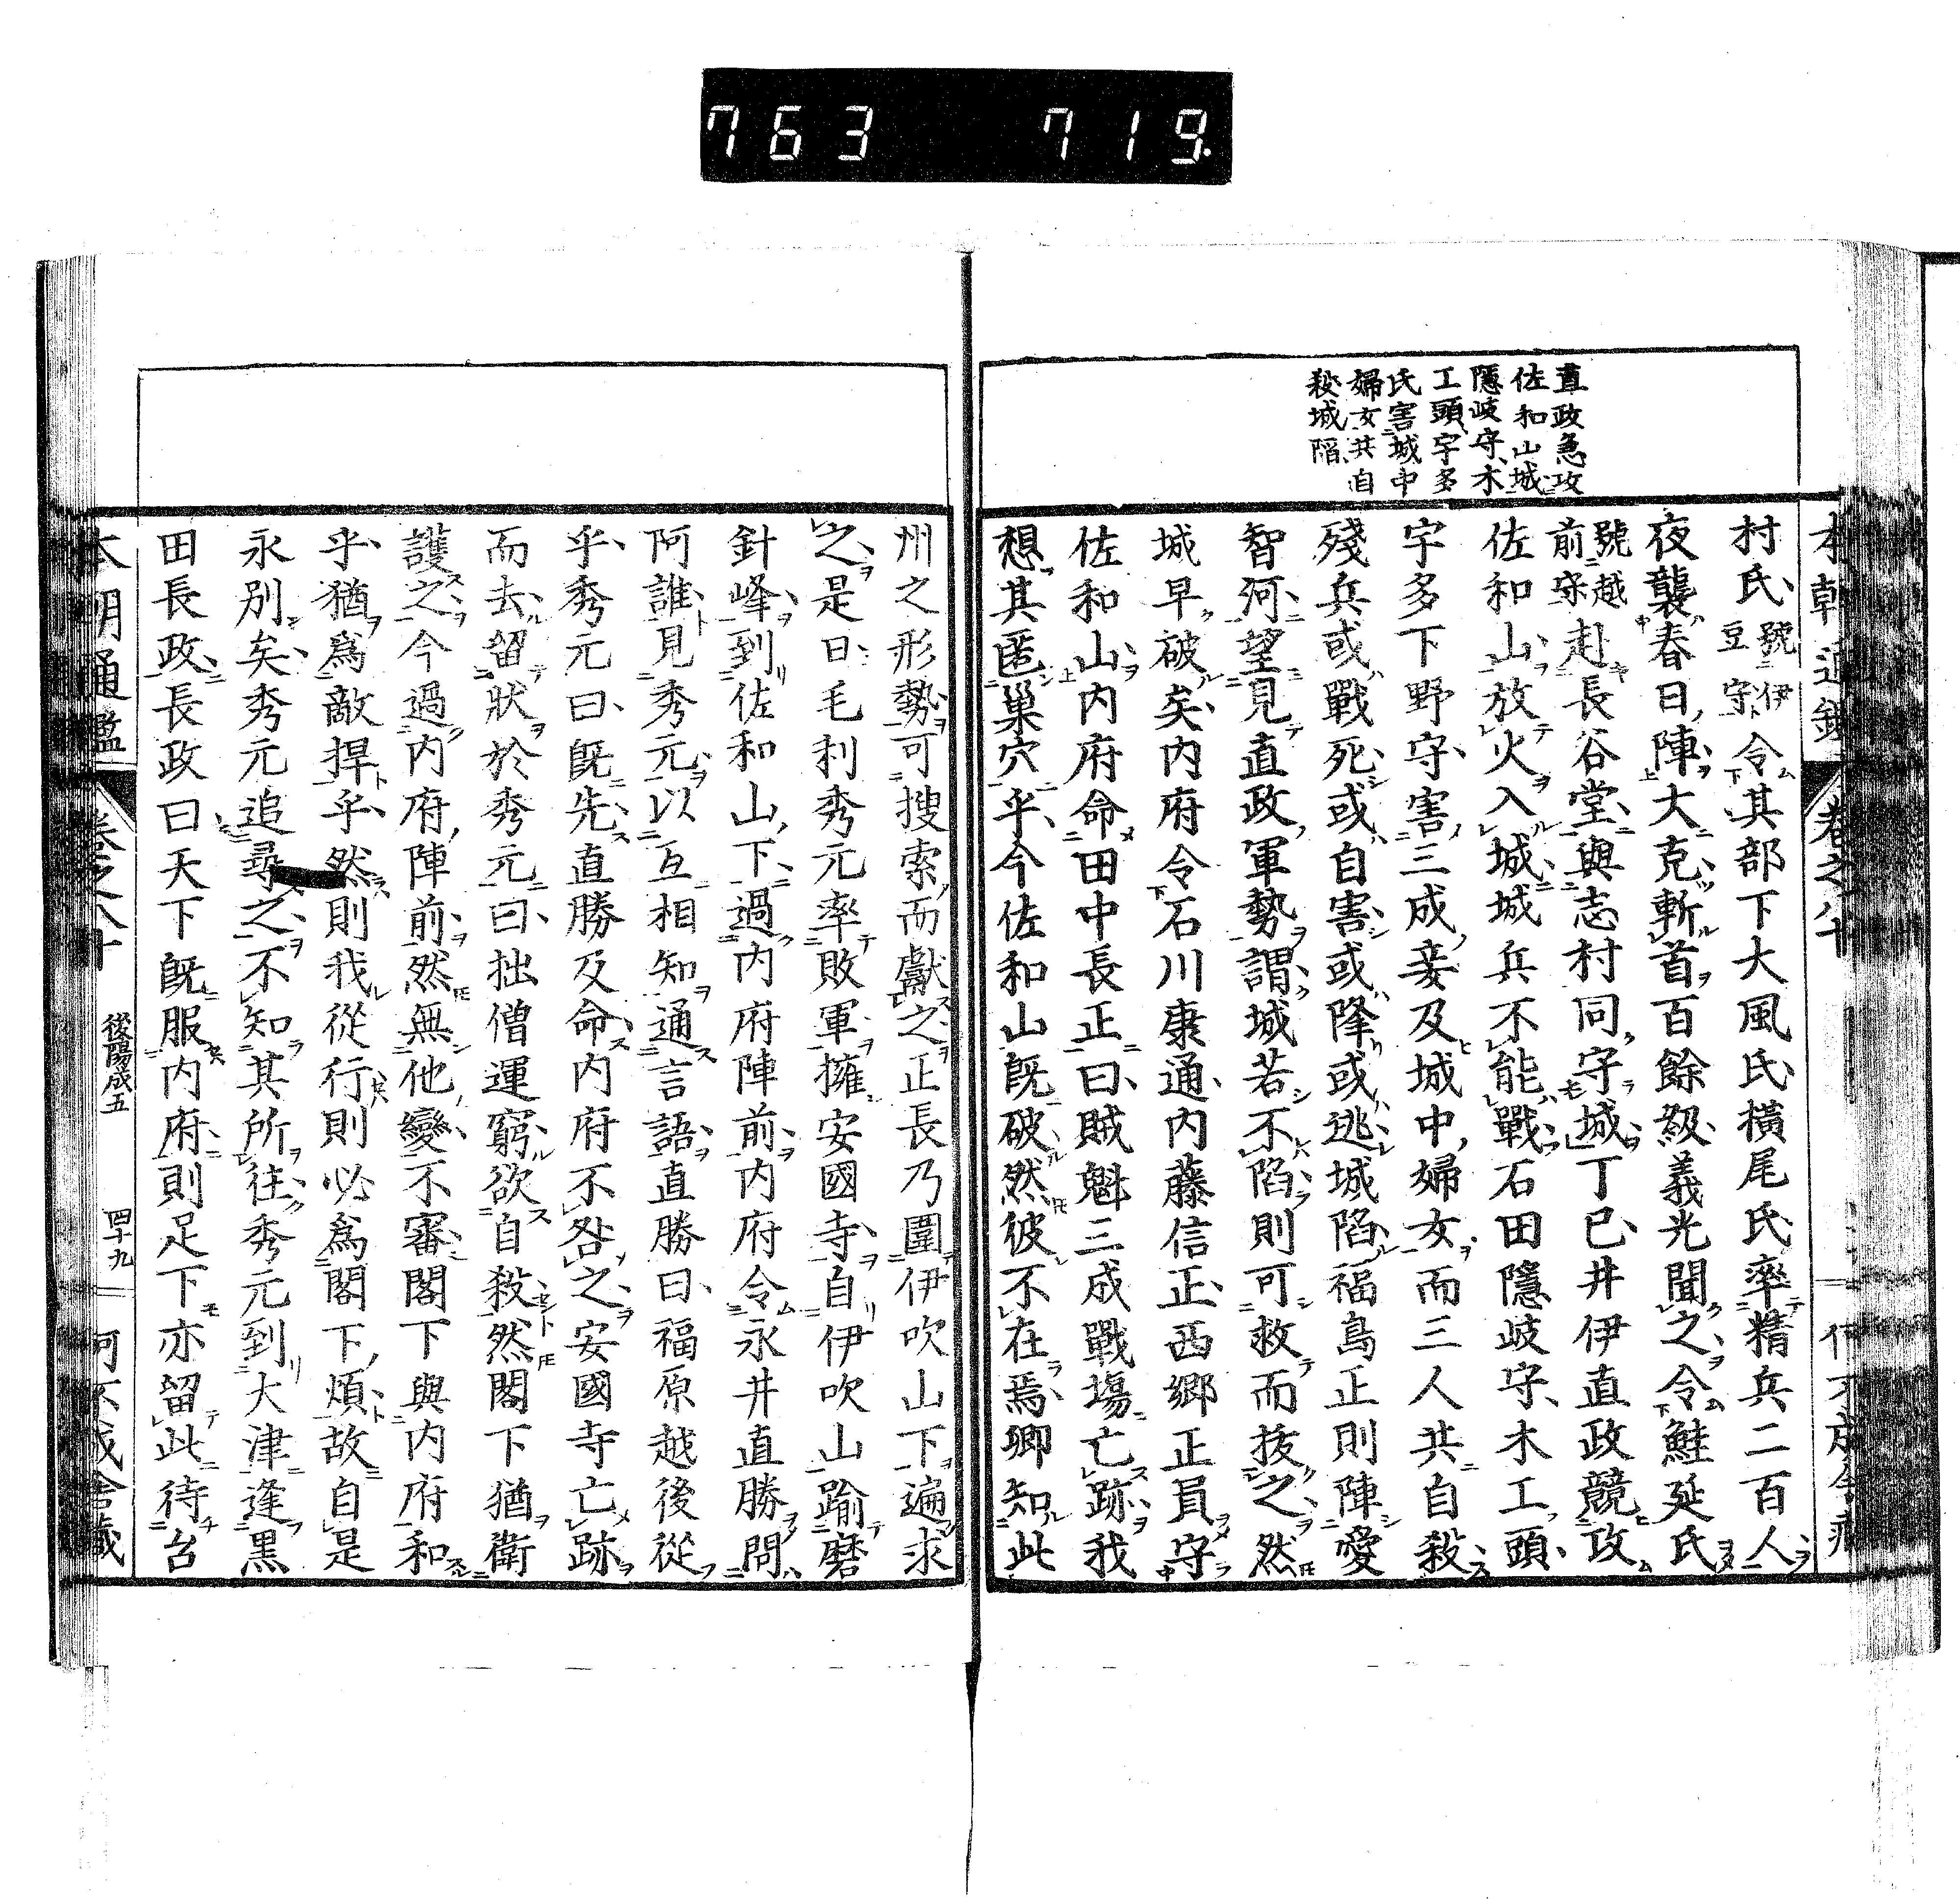 763 719.
直政急攻
佐和山城
隱岐守木
工頭宇多
氏害城中
婦女共自
殺城陷
村氏號伊豆守令其部下大風氏橫尾氏率精兵二百人
夜襲春日陣大克斬首百餘級義光聞之令鮭延氏
號越前守赴長谷堂與志村同守城丁巳井伊直政競攻
佐和山放火入城城兵不能戰石田隱岐守木工頭
宇多下野守害三成妾及城中婦女而三人共自殺
殘兵或戰死或自害或降或逃城陷福島正則陣愛
智河望見直政軍勢謂城若不陷則可救而拔之然
城早破矣內府令石川康通內藤信正西鄉正員守
佐和山內府命田中長正曰賊魁三成戰場亡跡我
想其匿巢穴乎今佐和山既破然彼不在焉卿知此
州之形勢可搜索而獻之正長乃圍伊吹山下遍求
之是日毛利秀元率敗軍擁安國寺自伊吹山踰磨
針峰到佐和山下過內府陣前內府令永井直勝問
阿誰見秀元以互相知通言語直勝曰福原越後從
乎秀元曰既先直勝及命內府不咎之安國寺亡跡
而去留狀於秀元曰拙僧運窮欲自殺然閣下猶衛
護之今過內府陣前然無他變不審閣下與內府和
乎猶爲敵捍乎然則我從行則必爲閣下煩故自是
永別矣秀元追尋之不知其所往秀元到大津逢黒
田長政長政曰天下既服內府則足下亦留此待台
本朝通鑑 卷之八十 後陽成五 四十九